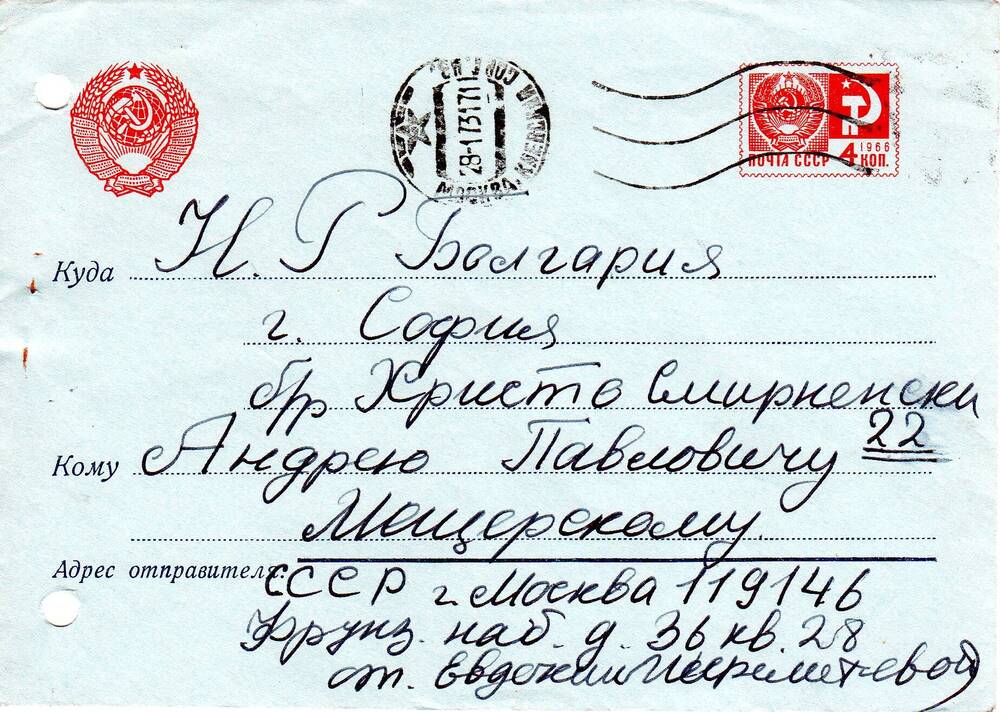 МОСКВА, КИЕВСКИЙ
28-1 73 17
1966
ПОЧТА СССР 4 КОП.
Куда Н. Р Болгария
г. София
бр Христо Смирненски
22
Кому Андрею Павловичу
Мещерскому.
Адрес отправителя:
СССР г. Москва 119146
Фрунз. наб. д. 36 кв. 28
от. Евдокии Шереметевой